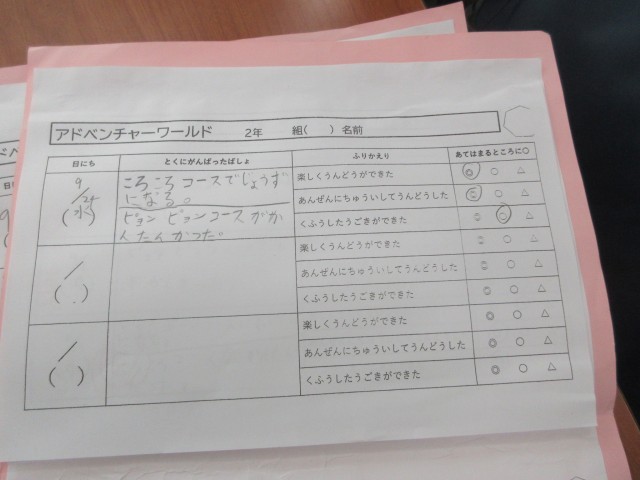 アドベンチャーワールド 2年 組( ) 名前
日にち とくにがんばったばしょ ふりかえり あてはまるところに○
9/24(水)
ころころコースでじょうず
になる。
ピョンピョンコースがか
んたんかった。
楽しくうんどうができた ◎ ○ △
あんぜんにちゅういしてうんどうした ◎ ○ △
くふうしたうごきができた ◎ ○ △
/( )
楽しくうんどうができた ◎ ○ △
あんぜんにちゅういしてうんどうした ◎ ○ △
くふうしたうごきができた ◎ ○ △
/( )
楽しくうんどうができた ◎ ○ △
あんぜんにちゅういしてうんどうした ◎ ○ △
くふうしたうごきができた ◎ ○ △